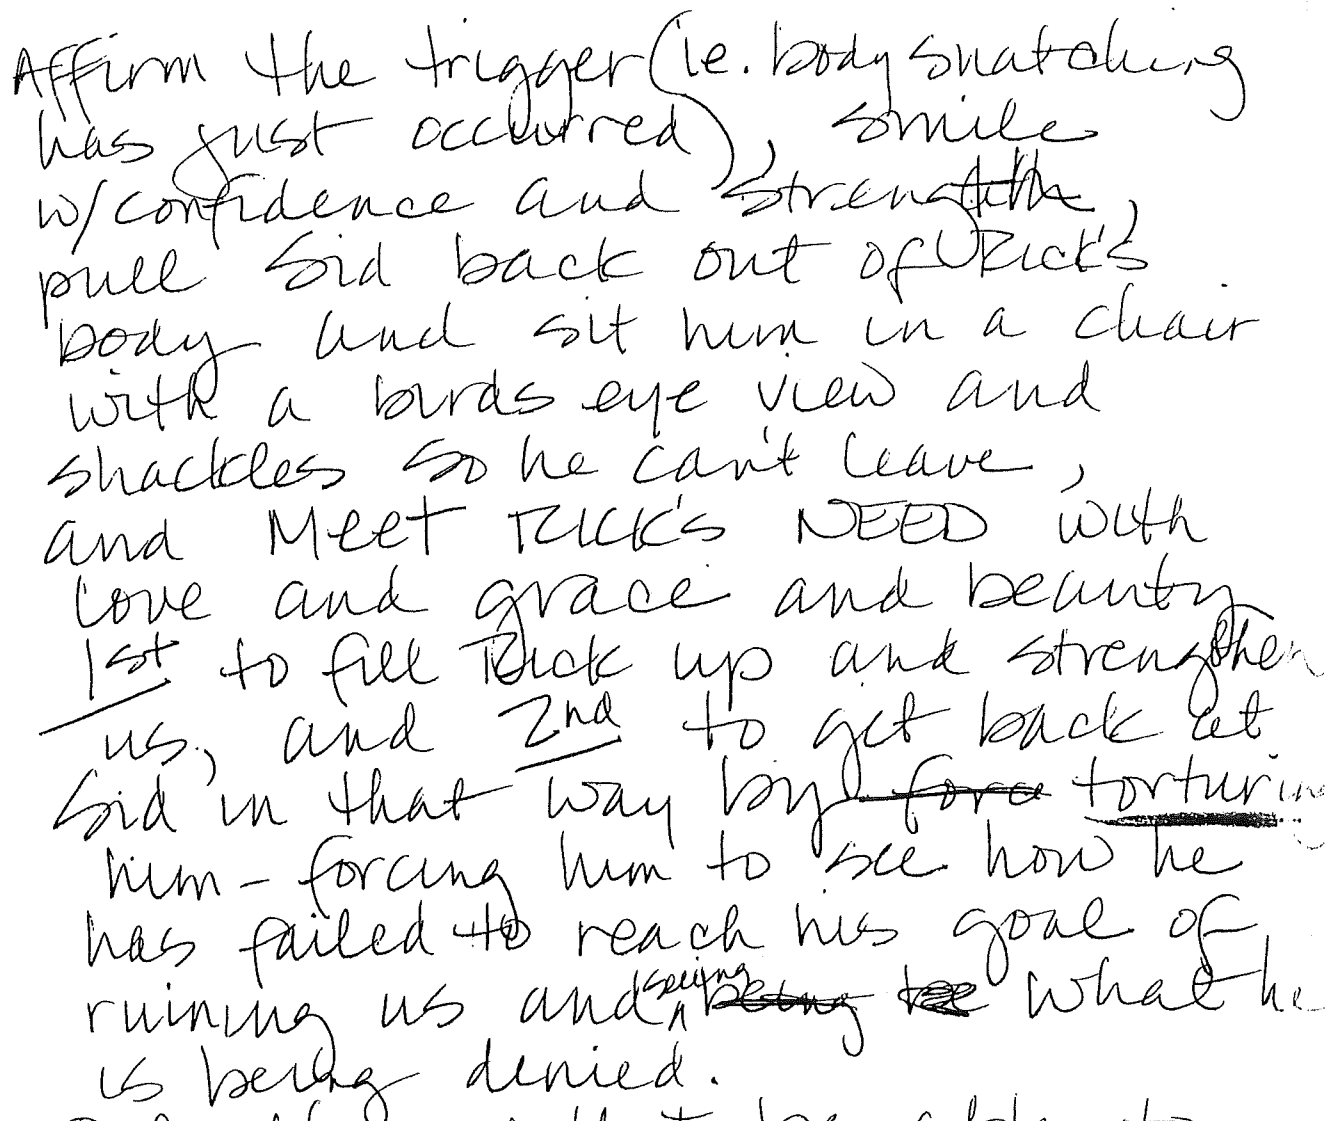 Affirm the trigger (ie. body snatching
has just occurred), smile
w/confidence and strength,
pull Sid back out of Rick's
body and sit him in a chair
with a birds eye view and
shackles so he can't leave,
and Meet RICK'S NEED with
love and grace and beauty
1st to fill Rick up and strengthen
us, and 2nd to get back at
Sid in that way by force torturing
him - forcing him to see how he
has failed to reach his goal of
ruining us and seeing being what he
is being denied.